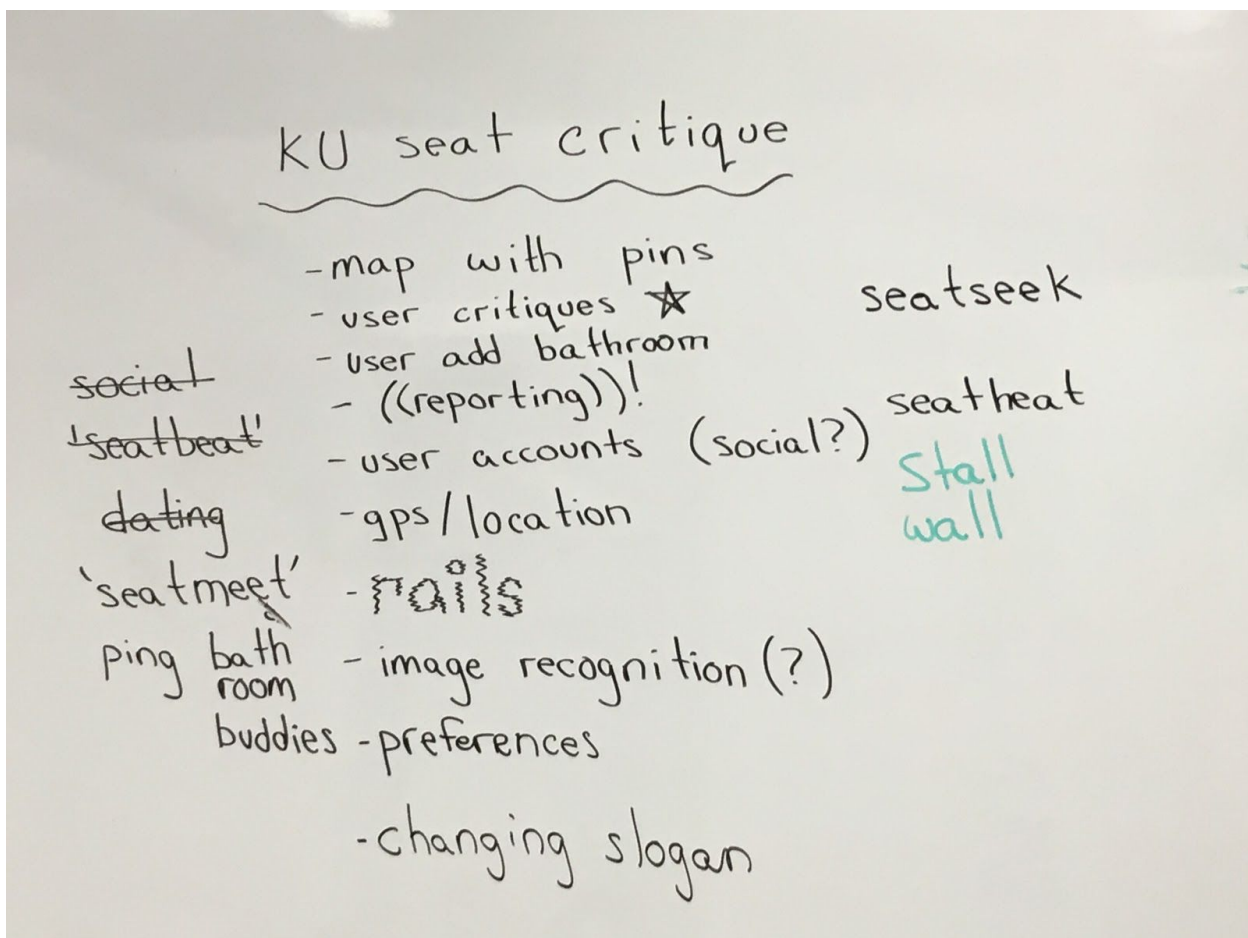 KU seat critique
- map with pins
- user critiques ☆
- user add bathroom
- ((reporting))!
- user accounts (social?)
- gps/location
- rails
- image recognition (?)
- preferences
- changing slogan
social
'seatbeat'
dating
'seatmeet'
ping bath
room
buddies
seatseek
seatheat
Stall
wall